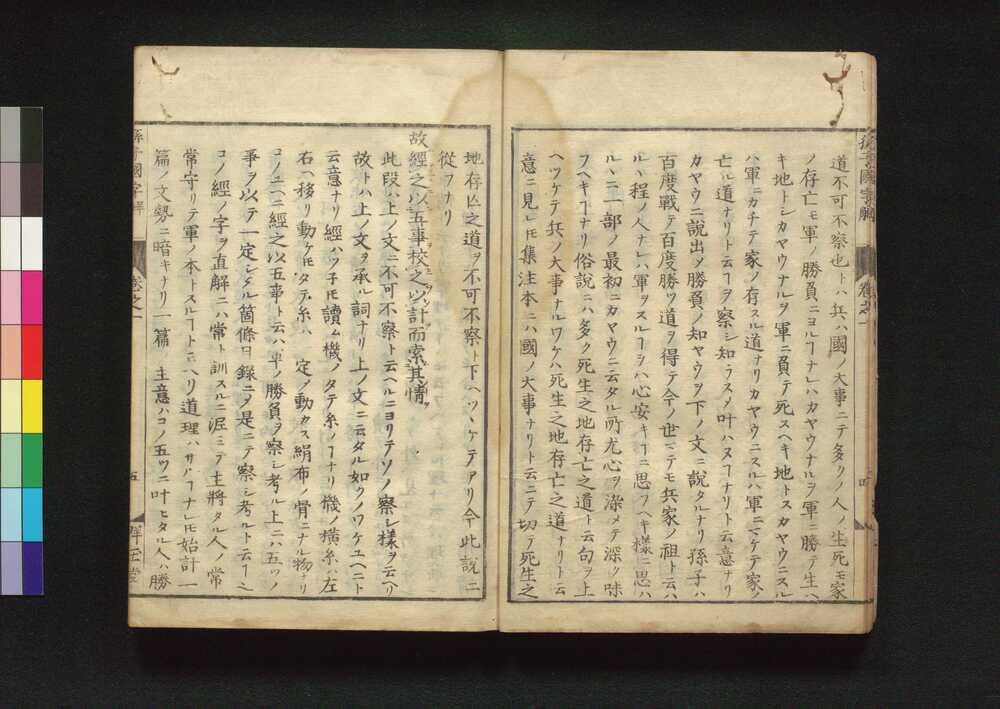 道不可不察也トハ兵ハ國ノ大事ニテ多クノ人ノ生死モ家
ノ存亡モ軍ノ勝負ニヨルヿナレハカヤウナルヲ軍ニ勝テ生ヘ
キ地トシカヤウナルヲ軍ニ負テ死スヘキ地トスカヤウニスル
ハ軍ニカチテ家ノ存スル道ナリカヤウニスルハ軍ニマケテ家ノ
亡ル道ナリト云ヿヲ察シ知ラスメ叶ハヌヿナリト云意ナリ
カヤウニ說出メ勝負ノ知ヤウヲ下ノ文ニ說タルナリ孫子ハ
百度戰テ百度勝ツ道ヲ得テ今ノ世ニテモ兵家ノ祖ト云ハ
ルヽ程ノ人ナレハ軍ヲスルヿヲハ心安キヿニ思フヘキ樣ニ思ハ
ルヽニ一部ノ最初ニカヤウニ云タル所尤心ヲ染メテ深ク味
フヘキヿナリ俗說ニハ多ク死生之地存亡之道ト云句ヲ上
ヘツケテ兵ノ大事ナルワケハ死生之地存亡之道ナリト云
意ニ見レ𪜈集注本ニハ國ノ大事ナリト云ニテ切テ死生之
地存亡之道ヲ不可不察ト下ヘツヽケテアリ今此說ニ
從フナリ
故經之以五事校之以計而索其情
此段ハ上ノ文ニ不可不察ト云ヘルニヨリテソノ察シ樣ヲ云ヘリ
故トハ上ノ文ヲ承ル詞ナリ上ノ文ニ云タル如クノワケユヘニト
云意ナリ經ハツ子𪜈讀ム機ノタテ糸ノヿナリ機ノ橫糸ハ左
右ヘ移リ動ケ𪜈タテ糸ハ一定ノ動カス絹布ノ骨ニナル物ナリ
コノユヘニ經之以五事ト云ハ軍ノ勝負ヲ察シ考ル上ニハ五ツノ
事ヲ以テ一定シタル箇條目錄ニメ是ニテ察シ考ルト云ヿ也
コノ經ノ字ヲ直解ニハ常ト訓スルニ泥ミテ主將タル人ノ常
常守リテ軍ノ本トスルヿト云ヘリ道理ハサルヿナレ𪜈始計一
篇ノ文勢ニ暗キナリ一篇ノ主意ハコノ五ツニ叶ヒタル人ハ勝
孫子國字解
卷之一
五